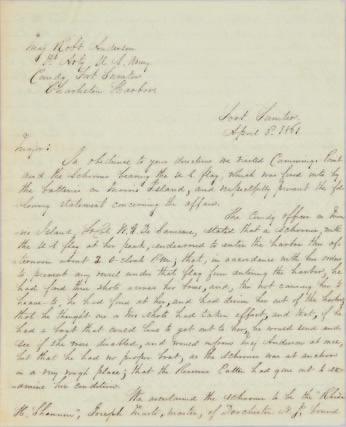 Maj. Robt Anderson
1st Arty U. S. Army
Comdg Fort Sumter
Charleston Harbor
Fort Sumter,
April 3d 1861
Major:
In obedience to your directions we visited Cummings Point
and the Schooner bearing the U S flag, which was fired into by
the batteries on Morris Island, and respectfully present the fol-
lowing statement concerning the affair.
The Comdg officer on Mor-
ris Island, Lt. Col. W. G. De Saussure, stated that a Schooner, with
the U S flag at her peak, endeavored to enter the harbor this af-
ternoon about 2 o'clock P.M; that, in accordance with his orders
to prevent any vessel under that flag from entering the harbor, he
had fired three shots across her bows, and, this not causing her to
heave to, he had fired at her, and had driven her out of the harbor;
that he thought one or two shots had taken effect, and that, if he
had a boat that could live to get out to her, he would send and
see if she were disabled, and would inform Maj Anderson at once,
but that he had no proper boat, as the schooner was at anchor
in a very rough place; that the Revenue Cutter had gone out to ex-
amine her condition.
We ascertained the schooner to be the "Rhoda
H. Shannon", Joseph Marts, master, of Dorchester N. J. bound